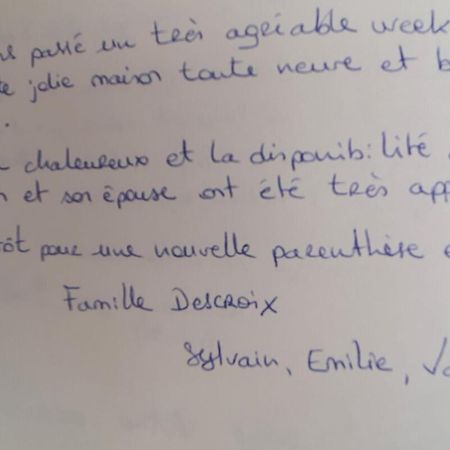 passé un très agréable week
jolie maison toute neuve et
.
chaleureux et la disponibilité
et son épouse ont été très app
pour une nouvelle parenthèse
Famille Descroix
Sylvain, Emilie,